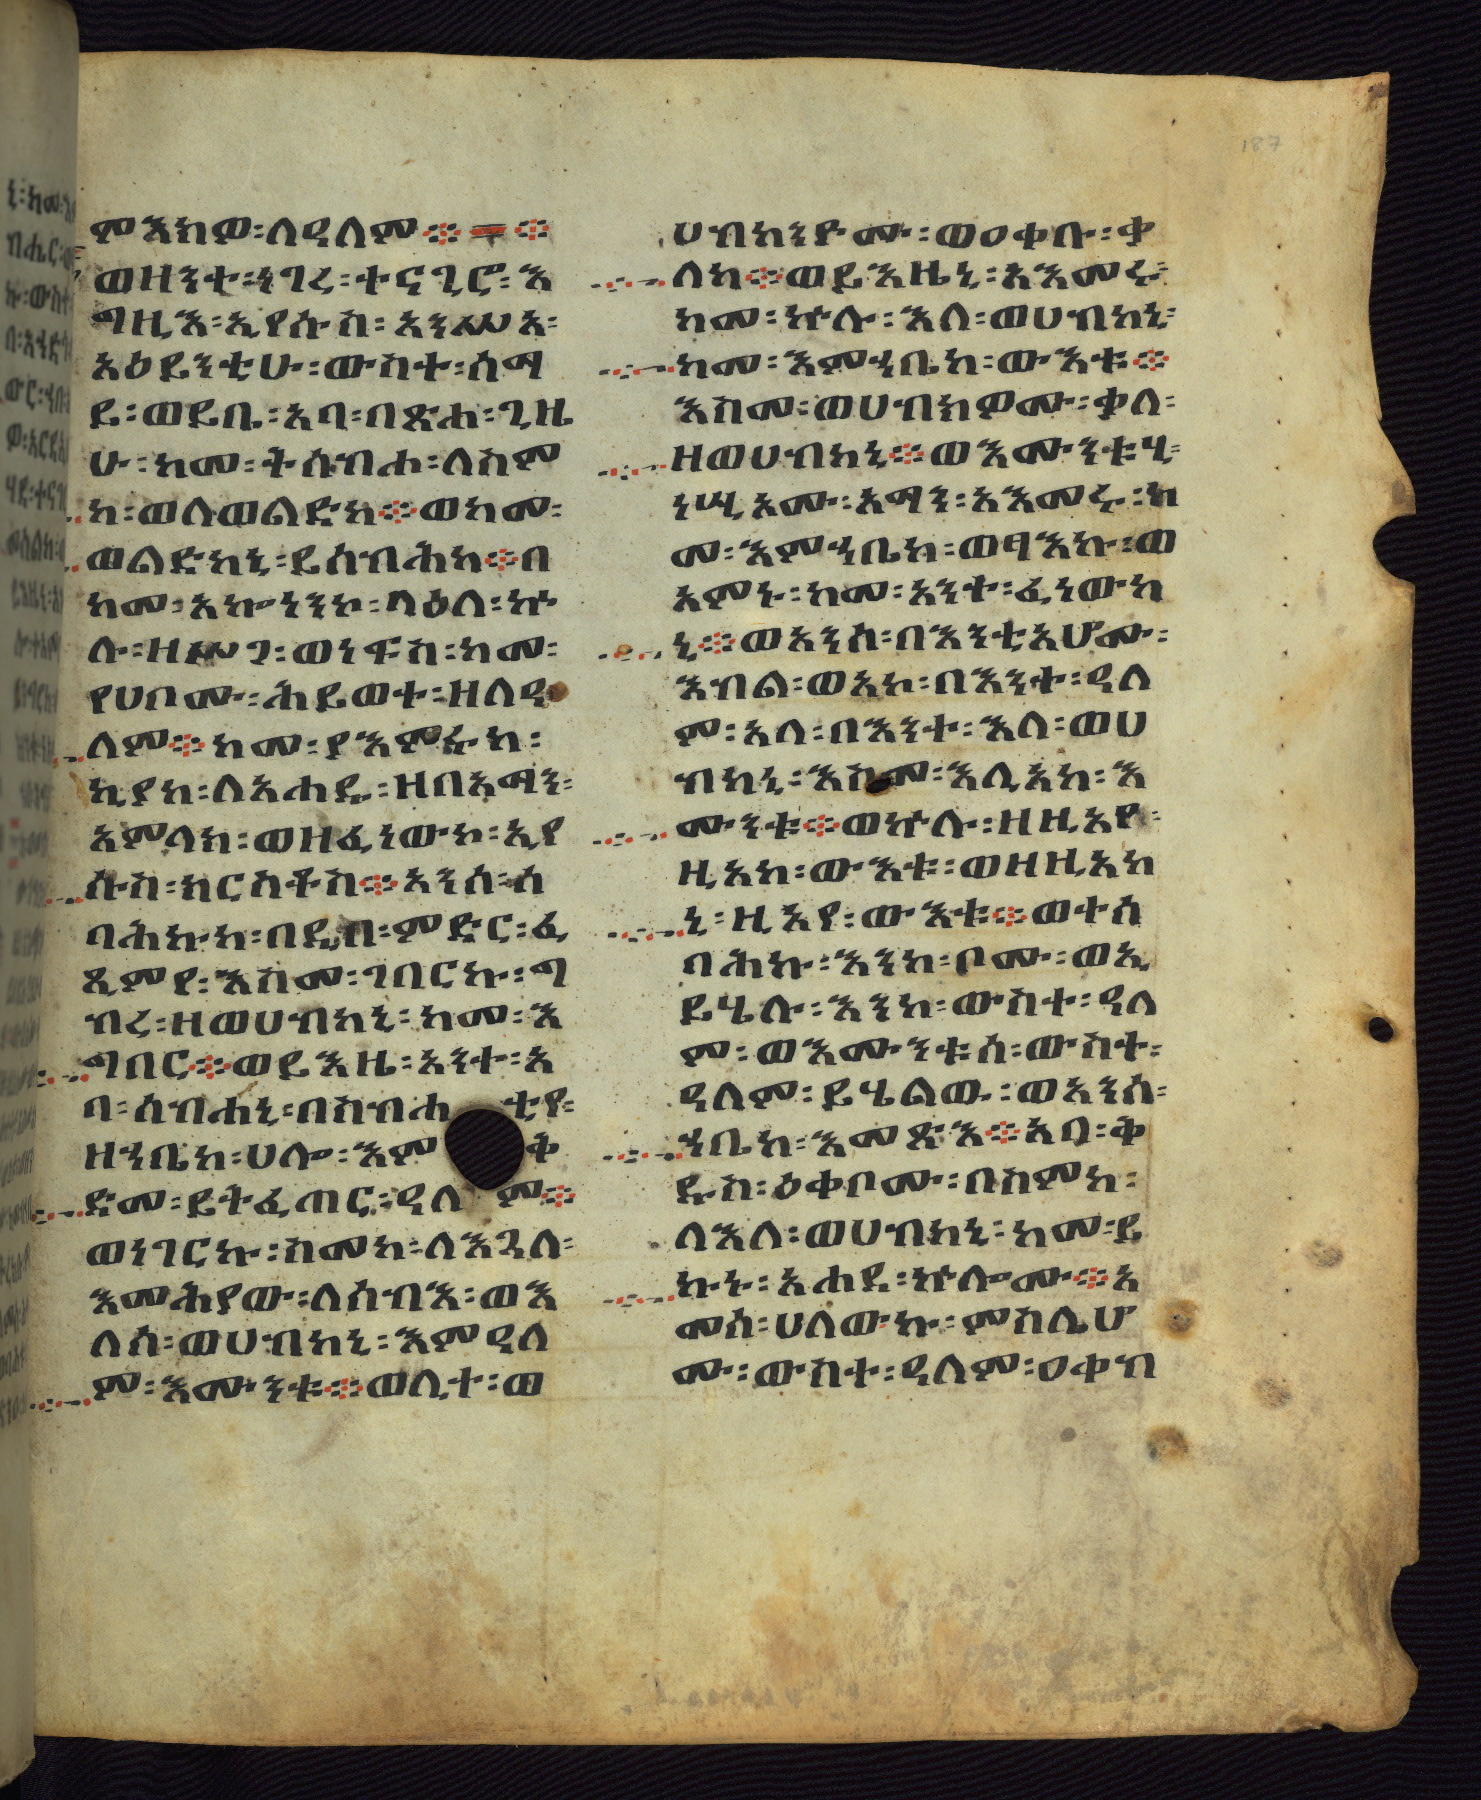 ምእክዎ፡ለዓለም፨ ፨
ወዘንተ፡ነገረ፡ተናጊሮ፡እ
ግዚእ፡ኢየሱስ፡አንሥአ፡
አዕይንቲሁ፡ውስተ፡ሰማ
ይ፡ወይቤ፡አባ፡በጽሐ፡ጊዜ
ሁ፡ከመ፡ትሰብሖ፡ለስም
ከ፡ወለወልድከ፨ወከመ፡
ወልድከኒ፡ይሰብሕከ፨በ
ከመ፡አኰነንኮ፡ላዕለ፡ኵ
ሉ፡ዘሥጋ፡ወነፍስ፡ከመ፡
የሀቦሙ፡ሕይወተ፡ዘለዓ
ለም፨ከመ፡ያእምሩከ፡
ኪያከ፡ለአሐዱ፡ዘበአማን፡
አምላክ፡ወዘፈነውኮ፡ኢየ
ሱስ፡ክርስቶስ፨አንሰ፡ሰ
ባሕኩከ፡በዲበ፡ምድር፡ፈ
ጺምየ፡እስመ፡ገበርኩ፡ግ
ብረ፡ዘወሀብከኒ፡ከመ፡እ
ግበር፨ወይእዜ፡አንተ፡አ
ባ፡ሰብሐኒ፡በስብሐቲየ፡
ዘኀቤከ፡ሀሎ፡እምቅ
ድመ፡ይትፈጠር፡ዓለም፨
ወነገርኩ፡ስመከ፡ለእጓለ፡
እመሕያው፡ለሰብእ፡ወእ
ለሰ፡ወሀብከኒ፡እምዓለ
ም፡እሙንቱ፨ወሊተ፡ወ
ሀብከንዮሙ፡ወዐቀቡ፡ቃ
ለከ፨ወይእዜኒ፡አእመሩ፡
ከመ፡ኵሉ፡እለ፡ወሀብከኒ፡
ከመ፡እምኀቤከ፡ውእቱ፨
እስመ፡ወሀብክዎሙ፡ቃለ፡
ዘወሀብከኒ፨ወእሙንቱሂ፡
ነሢኦሙ፡አማን፡አእመሩ፡ከ
መ፡እምኀቤከ፡ወፃእኩ፡ወ
አምኑ፡ከመ፡አንተ፡ፈነውከ
ኒ፨ወአንሰ፡በእንቲአሆሙ፡
እብል፡ወአኮ፡በእንተ፡ዓለ
ም፡አላ፡በእንተ፡እለ፡ወሀ
ብከኒ፡እስመ፡እሊአከ፡እ
ሙንቱ፨ወኵሉ፡ዘዚአየ፡
ዚአከ፡ውእቱ፡ወዘዚአከ
ኒ፡ዚአየ፡ውእቱ፨ወተሰ
ባሕኩ፡እንከ፡ቦሙ፡ወኢ
ይሄሉ፡እንከ፡ውስተ፡ዓለ
ም፡ወእሙንቱሰ፡ውስተ፡
ዓለም፡ይሄልው፡ወአንሰ፡
ኀቤከ፡እመጽእ፨አባ፡ቅ
ዱስ፡ዕቀቦሙ፡በስምከ፡
ለእለ፡ወሀብከኒ፡ከመ፡ይ
ኩኑ፡አሐደ፡ኵሎሙ፨አ
መሰ፡ሀለውኩ፡ምስሌሆ
ሙ፡ውስተ፡ዓለም፡ዐቀብ
187